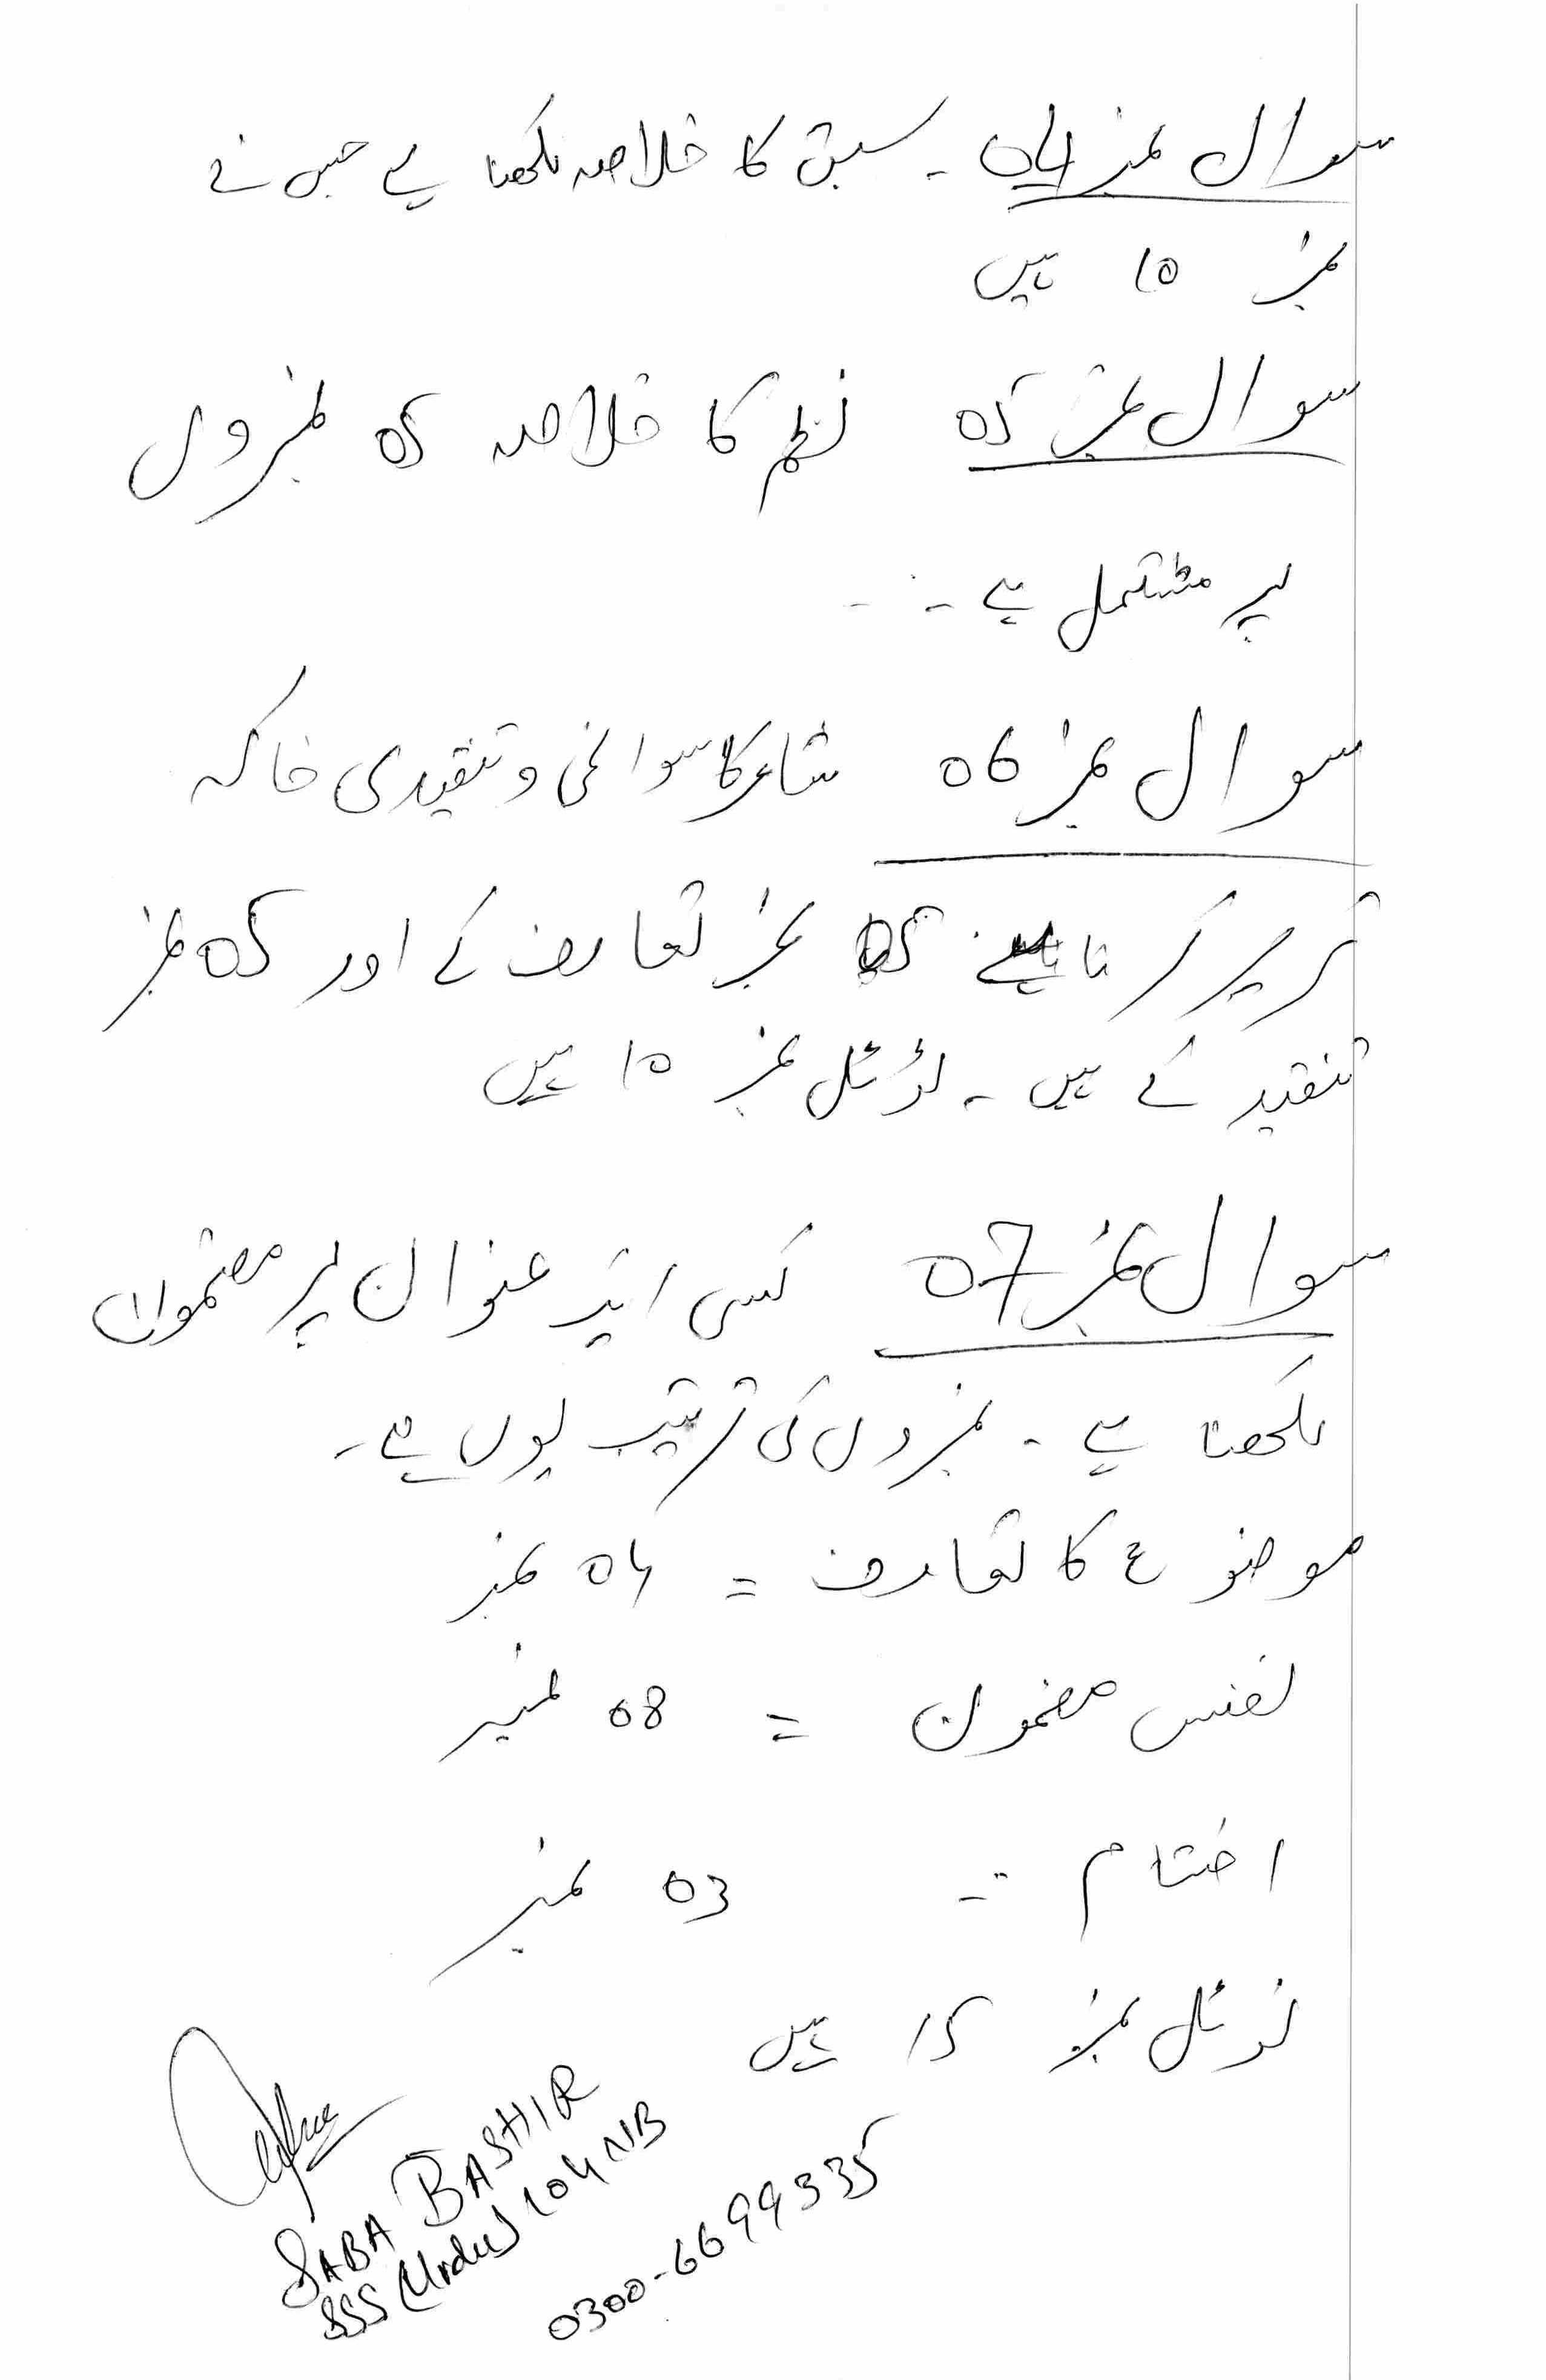 سوال نمبر 04 ۔ سبق کا خلاصہ لکھنا ہے جس کے
نمبر 10 ہیں
سوال نمبر 05 نظم کا خلاصہ 05 نمبروں
پر مشتمل ہے ۔
سوال نمبر 06 شاعر کا سوانحی و تنقیدی خاکہ
تحریر کرنا ہے 05 نمبر تعارف کے اور 05 نمبر
تنقید کے ہیں ۔ ٹوٹل نمبر 10 ہیں
سوال نمبر 07 کسی ایک عنوان پر مضمون
لکھنا ہے ۔ نمبروں کی ترتیب یوں ہے ۔
موضوع کا تعارف = 04 نمبر
نفس مضمون = 08 نمبر
اختتام = 03 نمبر
ٹوٹل نمبر 15 ہیں
SABA BASHIR
SSS (Urdu) 104 NB
0300-6699335